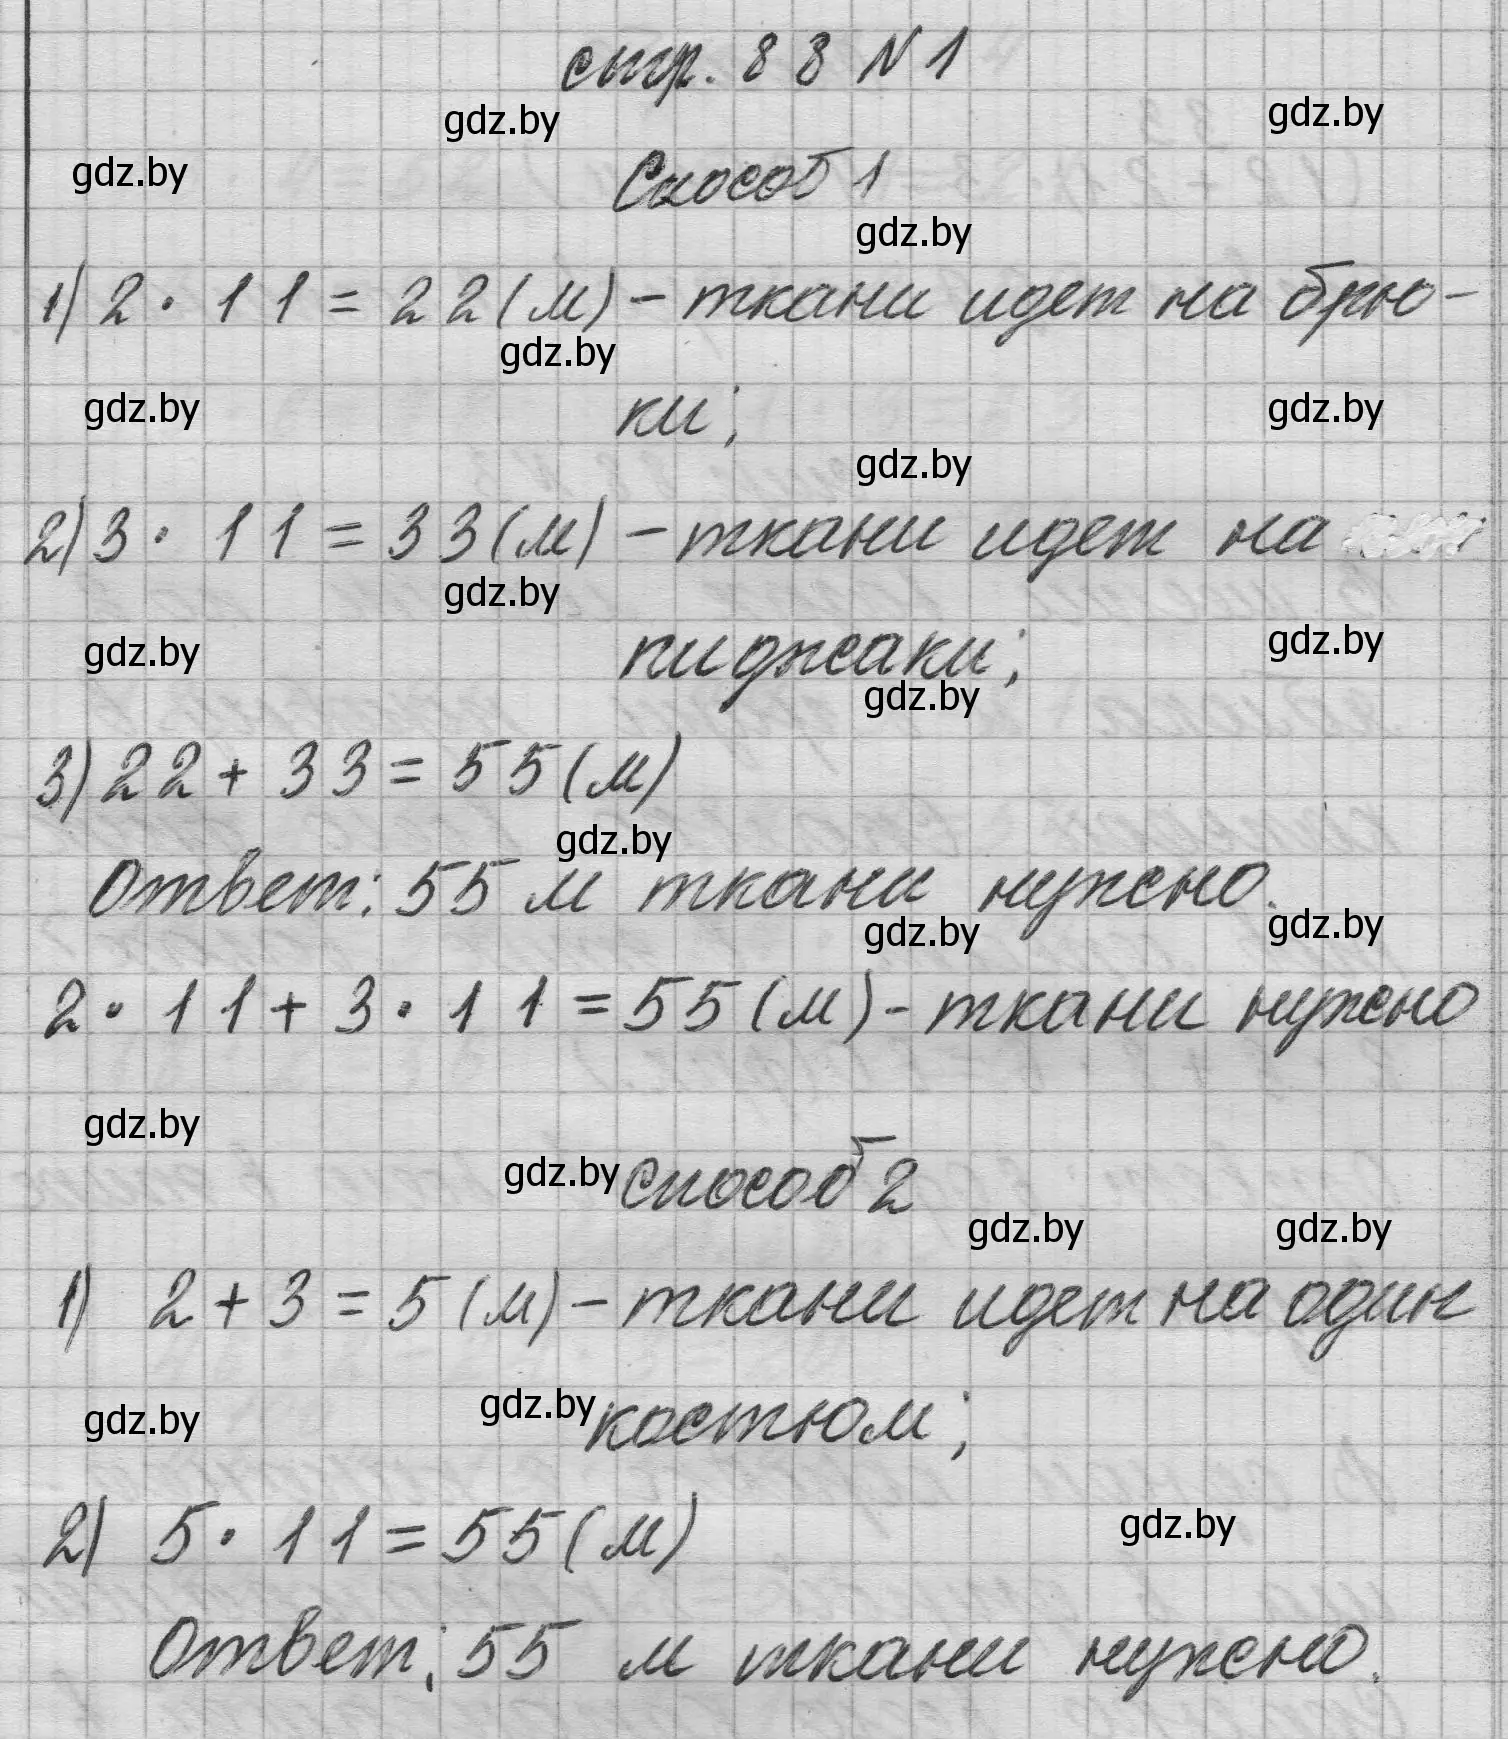 стр. 88 N 1
gdz.by gdz.by
gdz.by
Способ 1
gdz.by
1) 2 · 11 = 22 (м) - ткани идет на брю-
gdz.by
gdz.by ки; gdz.by
gdz.by
2) 3 · 11 = 33 (м) - ткани идет на
gdz.by
gdz.by пиджаки; gdz.by
gdz.by
3) 22 + 33 = 55 (м)
gdz.by
Ответ: 55 м ткани нужно.
gdz.by gdz.by
2 · 11 + 3 · 11 = 55 (м) - ткани нужно
gdz.by
gdz.by способ 2
gdz.by gdz.by
1) 2 + 3 = 5 (м) - ткани идет на один
gdz.by gdz.by костюм;
2) 5 · 11 = 55 (м) gdz.by
Ответ: 55 м ткани нужно.